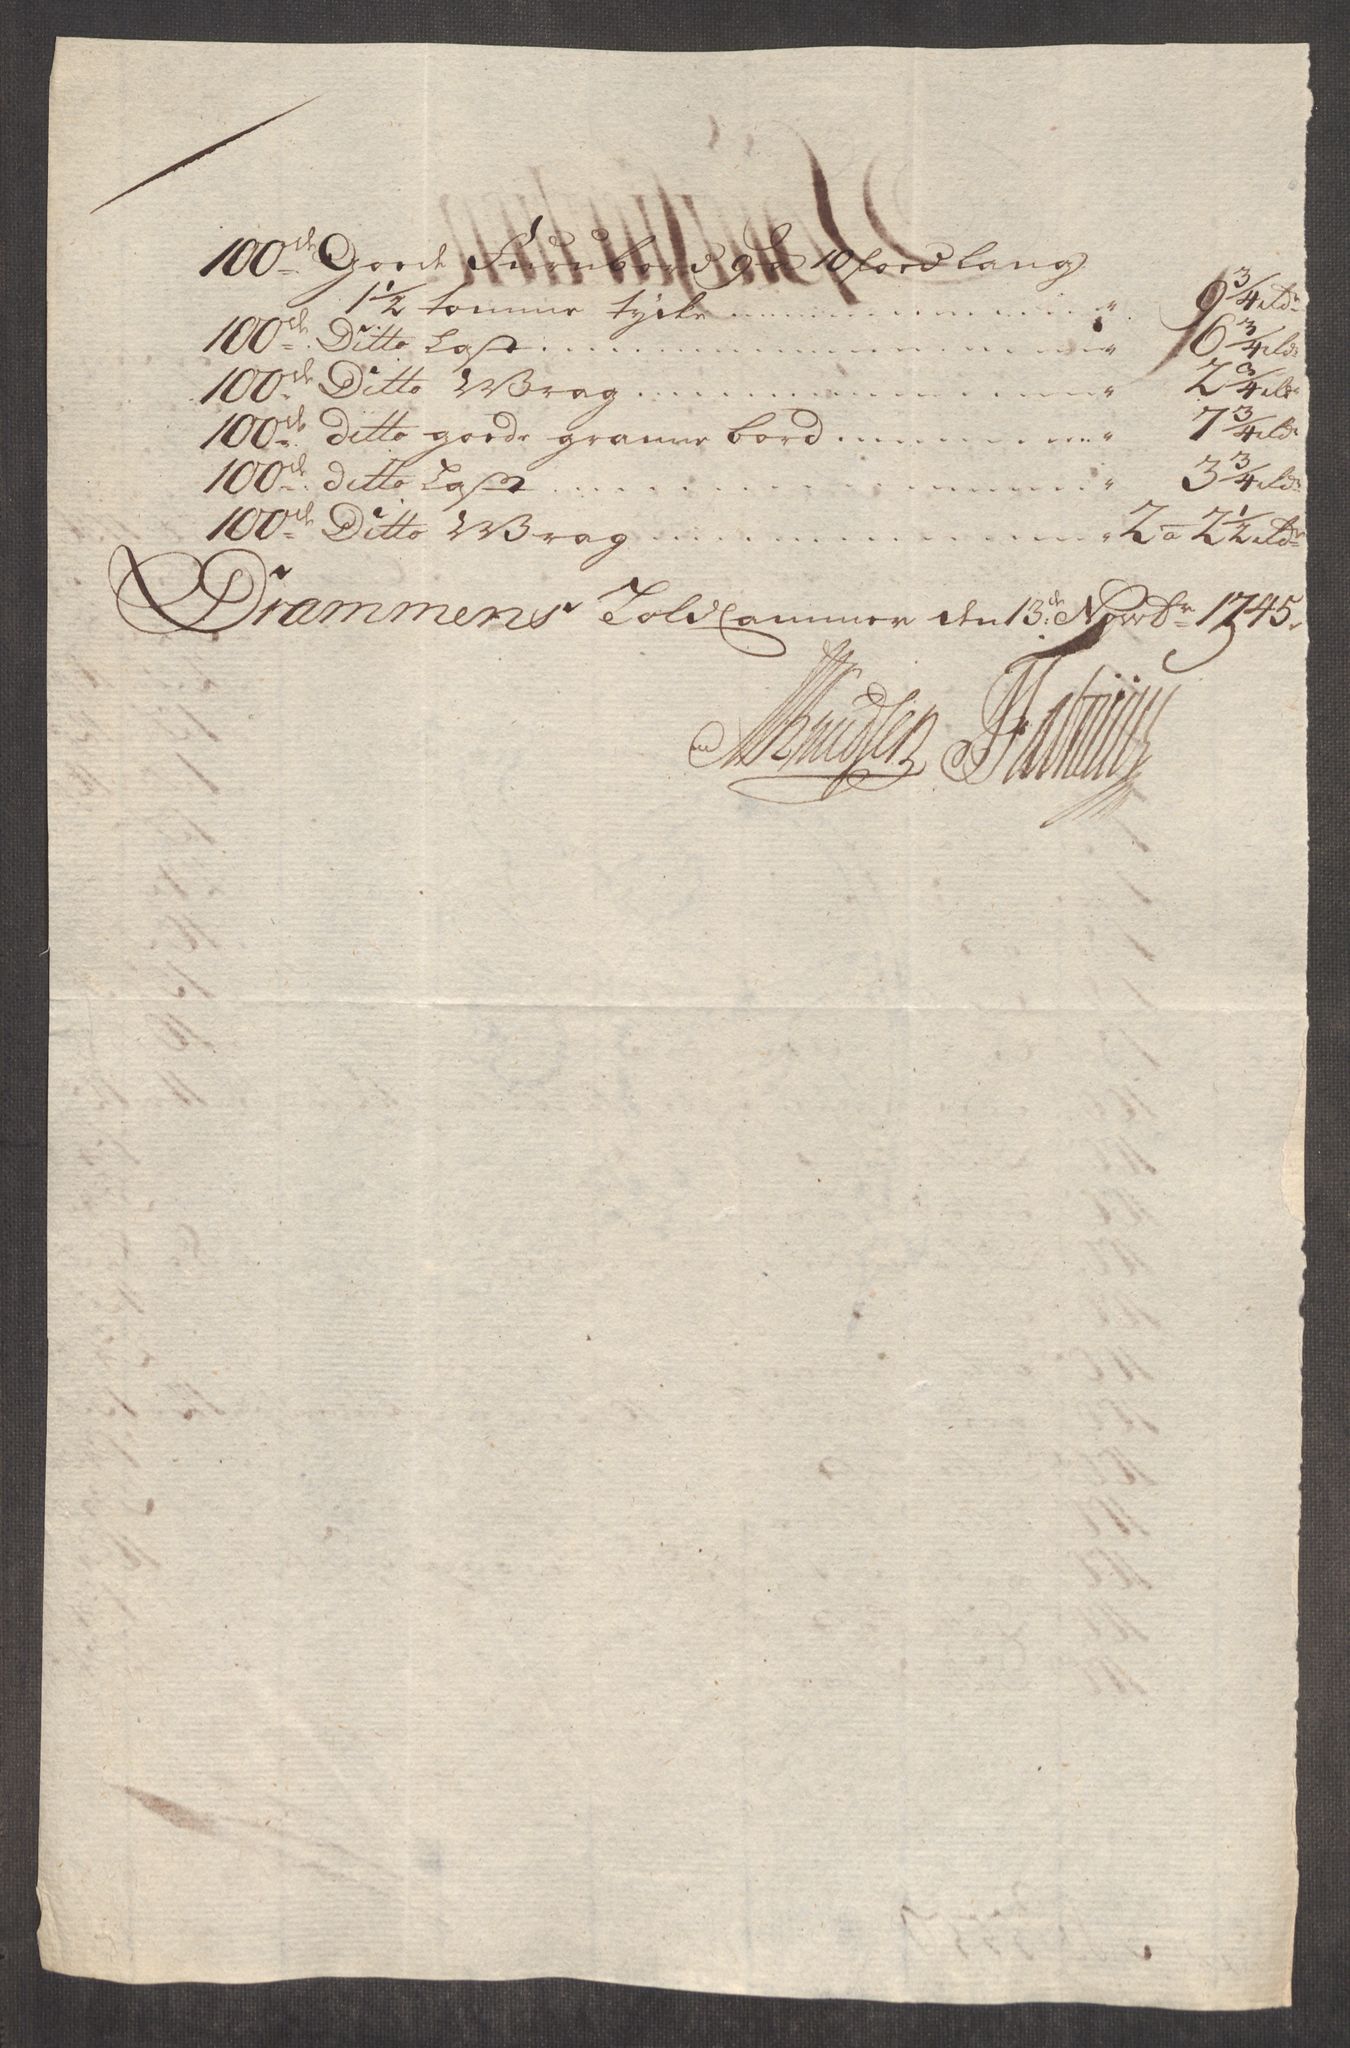 100de Goede Furrubord 9 a 10 foed lang
1½ tomme tycke ... " 9¾ rdr
100de Ditto Last ... " 6¾ rdr
100de Ditto Wrag ... " 2¾ rdr
100de ditto goede granne bord ... " 7¾ rdr
100de ditto Last ... " 3¾ rdr
100de Ditto Wrag ... " 2 a 2½ rdr
Drammens Toldcammer den 13de Novbr 1745.
Knudsen